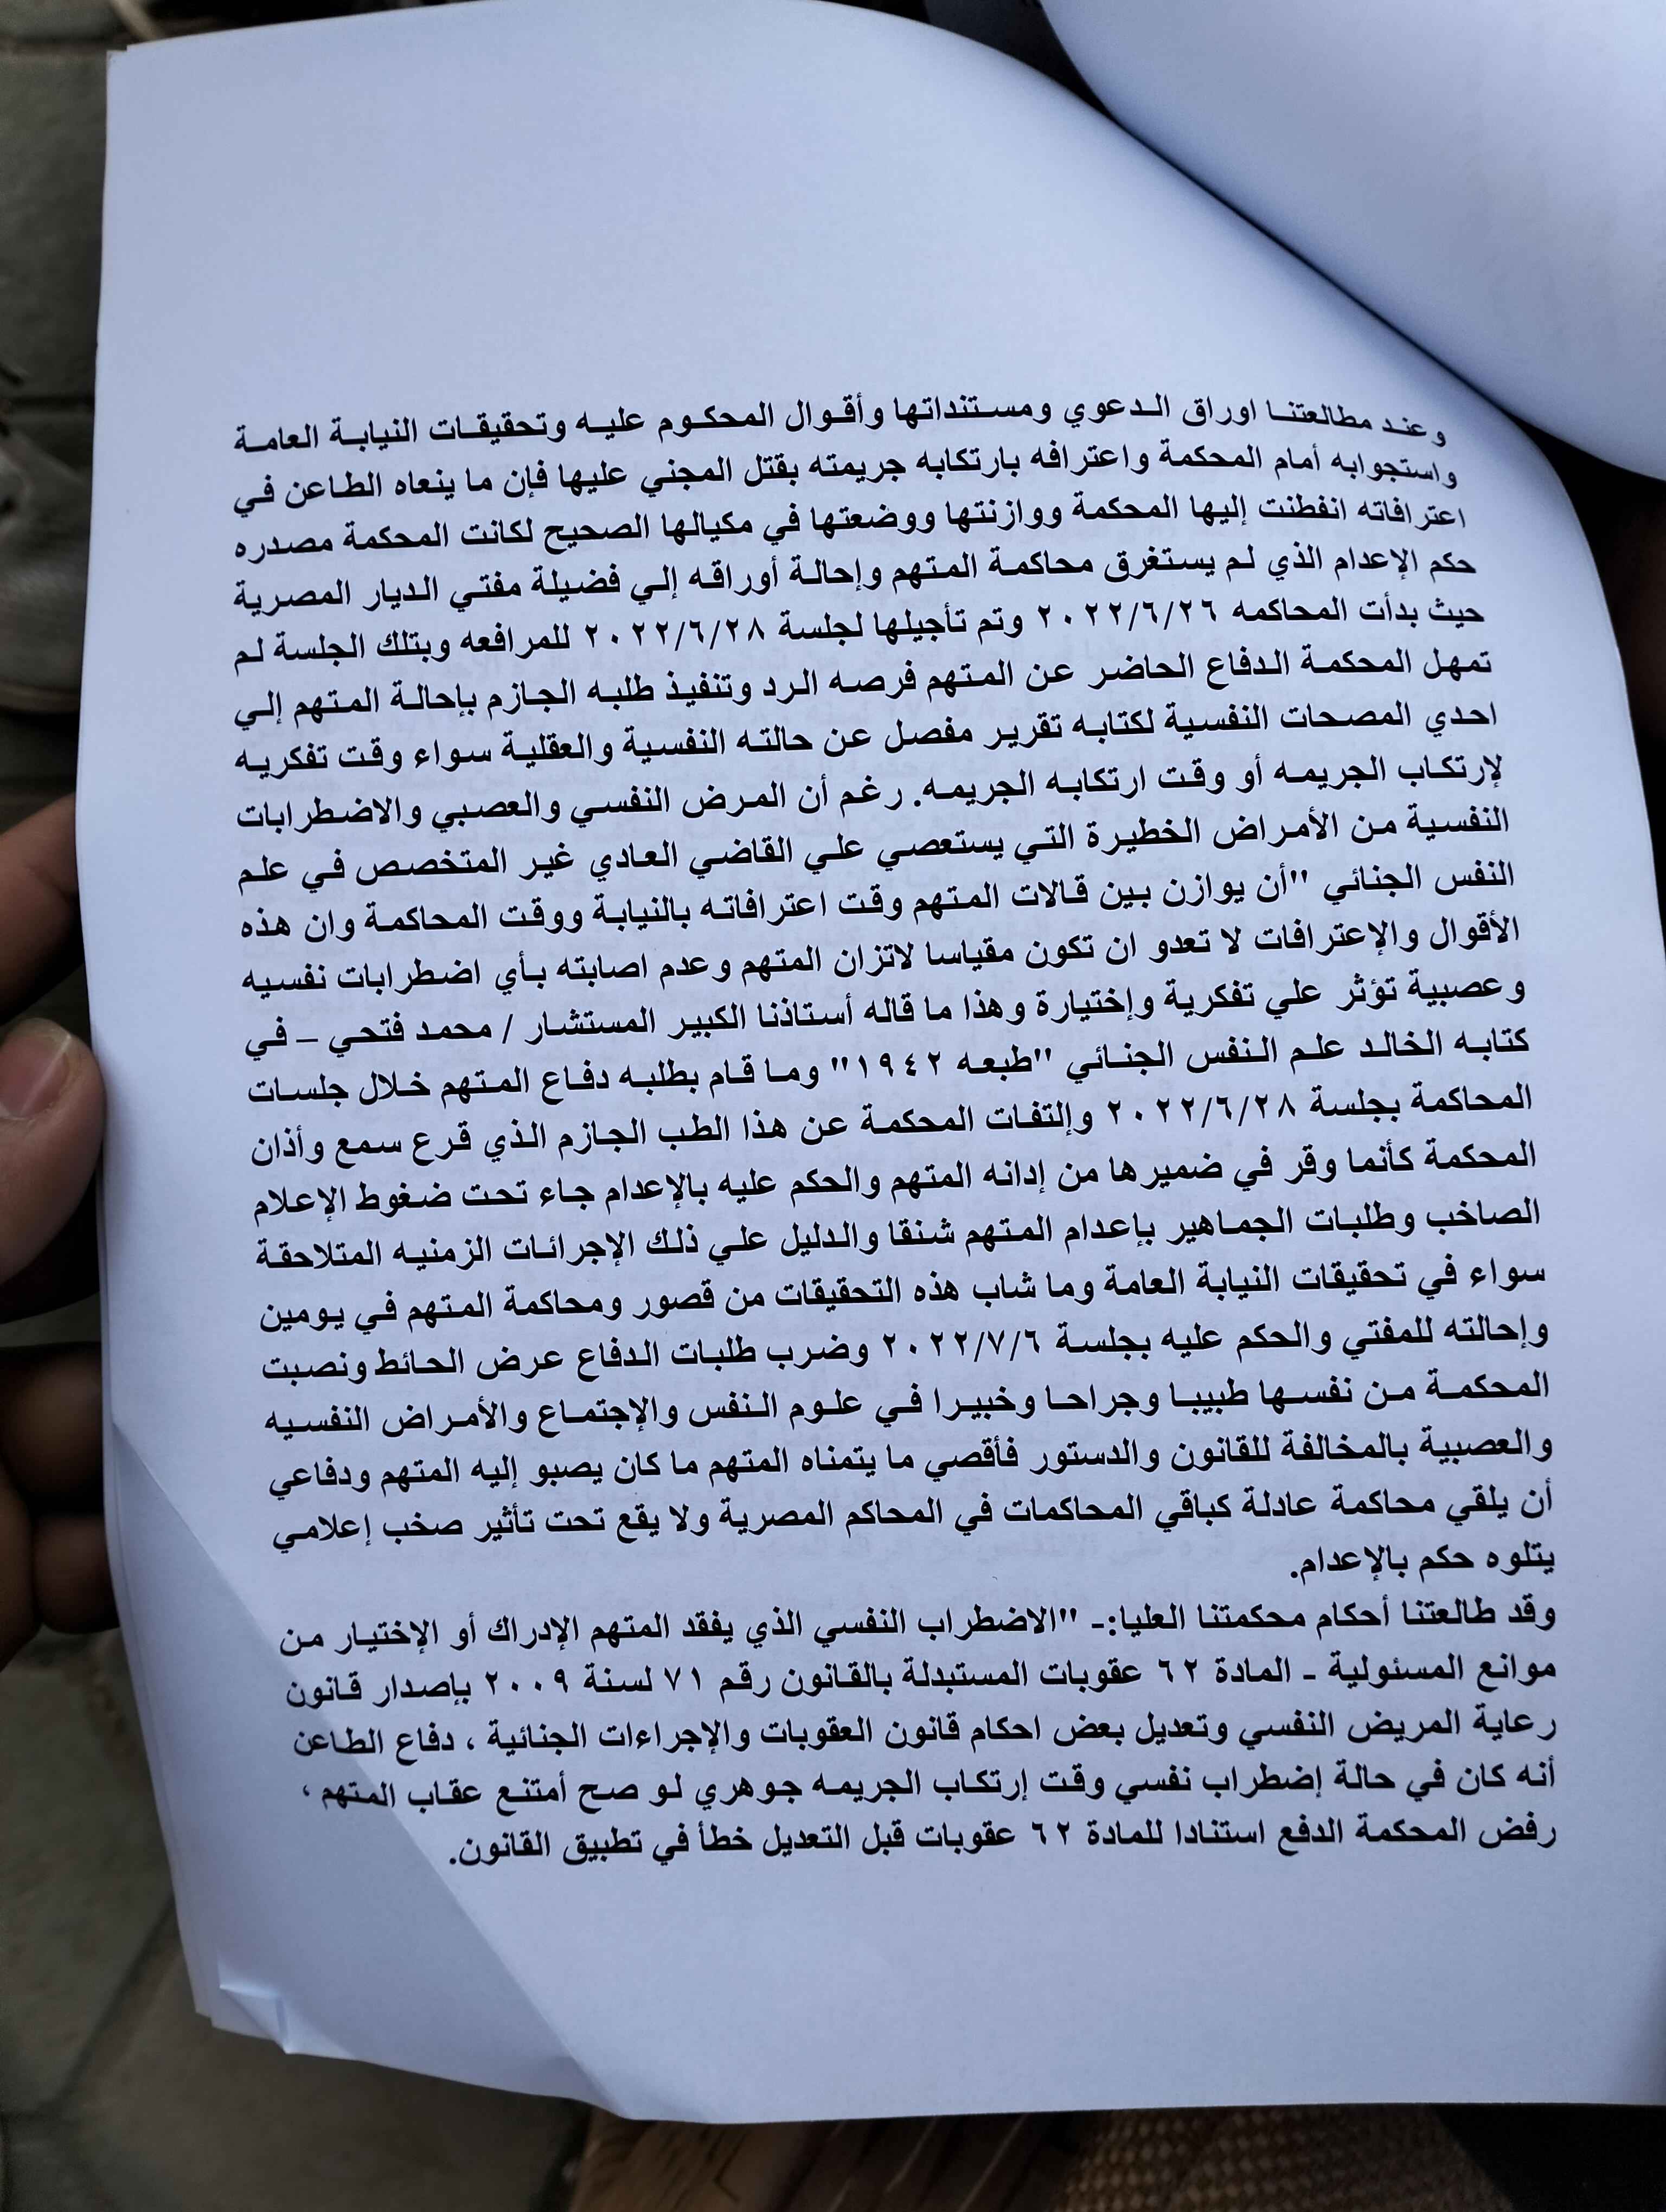 وعند مطالعتنا اوراق الدعوي ومستنداتها وأقوال المحكوم عليه وتحقيقات النيابة العامة
واستجوابه أمام المحكمة واعترافه بارتكابه جريمته بقتل المجني عليها فإن ما ينعاه الطاعن في
اعترافاته انفطنت إليها المحكمة ووازنتها ووضعتها في مكيالها الصحيح لكانت المحكمة مصدره
حكم الإعدام الذي لم يستغرق محاكمة المتهم وإحالة أوراقه إلي فضيلة مفتي الديار المصرية
حيث بدأت المحاكمه ٢٠٢٢/٦/٢٦ وتم تأجيلها لجلسة ٢٠٢٢/٦/٢٨ للمرافعه وبتلك الجلسة لم
تمهل المحكمة الدفاع الحاضر عن المتهم فرصه الرد وتنفيذ طلبه الجازم بإحالة المتهم إلي
احدي المصحات النفسية لكتابه تقرير مفصل عن حالته النفسية والعقلية سواء وقت تفكريه
لإرتكاب الجريمه أو وقت ارتكابه الجريمه. رغم أن المرض النفسي والعصبي والاضطرابات
النفسية من الأمراض الخطيرة التي يستعصي علي القاضي العادي غير المتخصص في علم
النفس الجنائي "أن يوازن بين قالات المتهم وقت اعترافاته بالنيابة ووقت المحاكمة وان هذه
الأقوال والإعترافات لا تعدو ان تكون مقياسا لاتزان المتهم وعدم اصابته بأي اضطرابات نفسيه
وعصبية تؤثر علي تفكرية وإختيارة وهذا ما قاله أستاذنا الكبير المستشار / محمد فتحي – في
كتابه الخالد علم النفس الجنائي "طبعه ١٩٤٢" وما قام بطلبه دفاع المتهم خلال جلسات
المحاكمة بجلسة ٢٠٢٢/٦/٢٨ وإلتفات المحكمة عن هذا الطب الجازم الذي قرع سمع وأذان
المحكمة كأنما وقر في ضميرها من إدانه المتهم والحكم عليه بالإعدام جاء تحت ضغوط الإعلام
الصاخب وطلبات الجماهير بإعدام المتهم شنقا والدليل علي ذلك الإجرائات الزمنيه المتلاحقة
سواء في تحقيقات النيابة العامة وما شاب هذه التحقيقات من قصور ومحاكمة المتهم في يومين
وإحالته للمفتي والحكم عليه بجلسة ٢٠٢٢/٧/٦ وضرب طلبات الدفاع عرض الحائط ونصبت
المحكمة من نفسها طبيبا وجراحا وخبيرا في علوم النفس والإجتماع والأمراض النفسيه
والعصبية بالمخالفة للقانون والدستور فأقصي ما يتمناه المتهم ما كان يصبو إليه المتهم ودفاعي
أن يلقي محاكمة عادلة كباقي المحاكمات في المحاكم المصرية ولا يقع تحت تأثير صخب إعلامي
يتلوه حكم بالإعدام.
وقد طالعتنا أحكام محكمتنا العليا:- "الاضطراب النفسي الذي يفقد المتهم الإدراك أو الإختيار من
موانع المسئولية - المادة ٦٢ عقوبات المستبدلة بالقانون رقم ٧١ لسنة ٢٠٠٩ بإصدار قانون
رعاية المريض النفسي وتعديل بعض احكام قانون العقوبات والإجراءات الجنائية ، دفاع الطاعن
أنه كان في حالة إضطراب نفسي وقت إرتكاب الجريمه جوهري لو صح أمتنع عقاب المتهم ،
رفض المحكمة الدفع استنادا للمادة ٦٢ عقوبات قبل التعديل خطأ في تطبيق القانون.